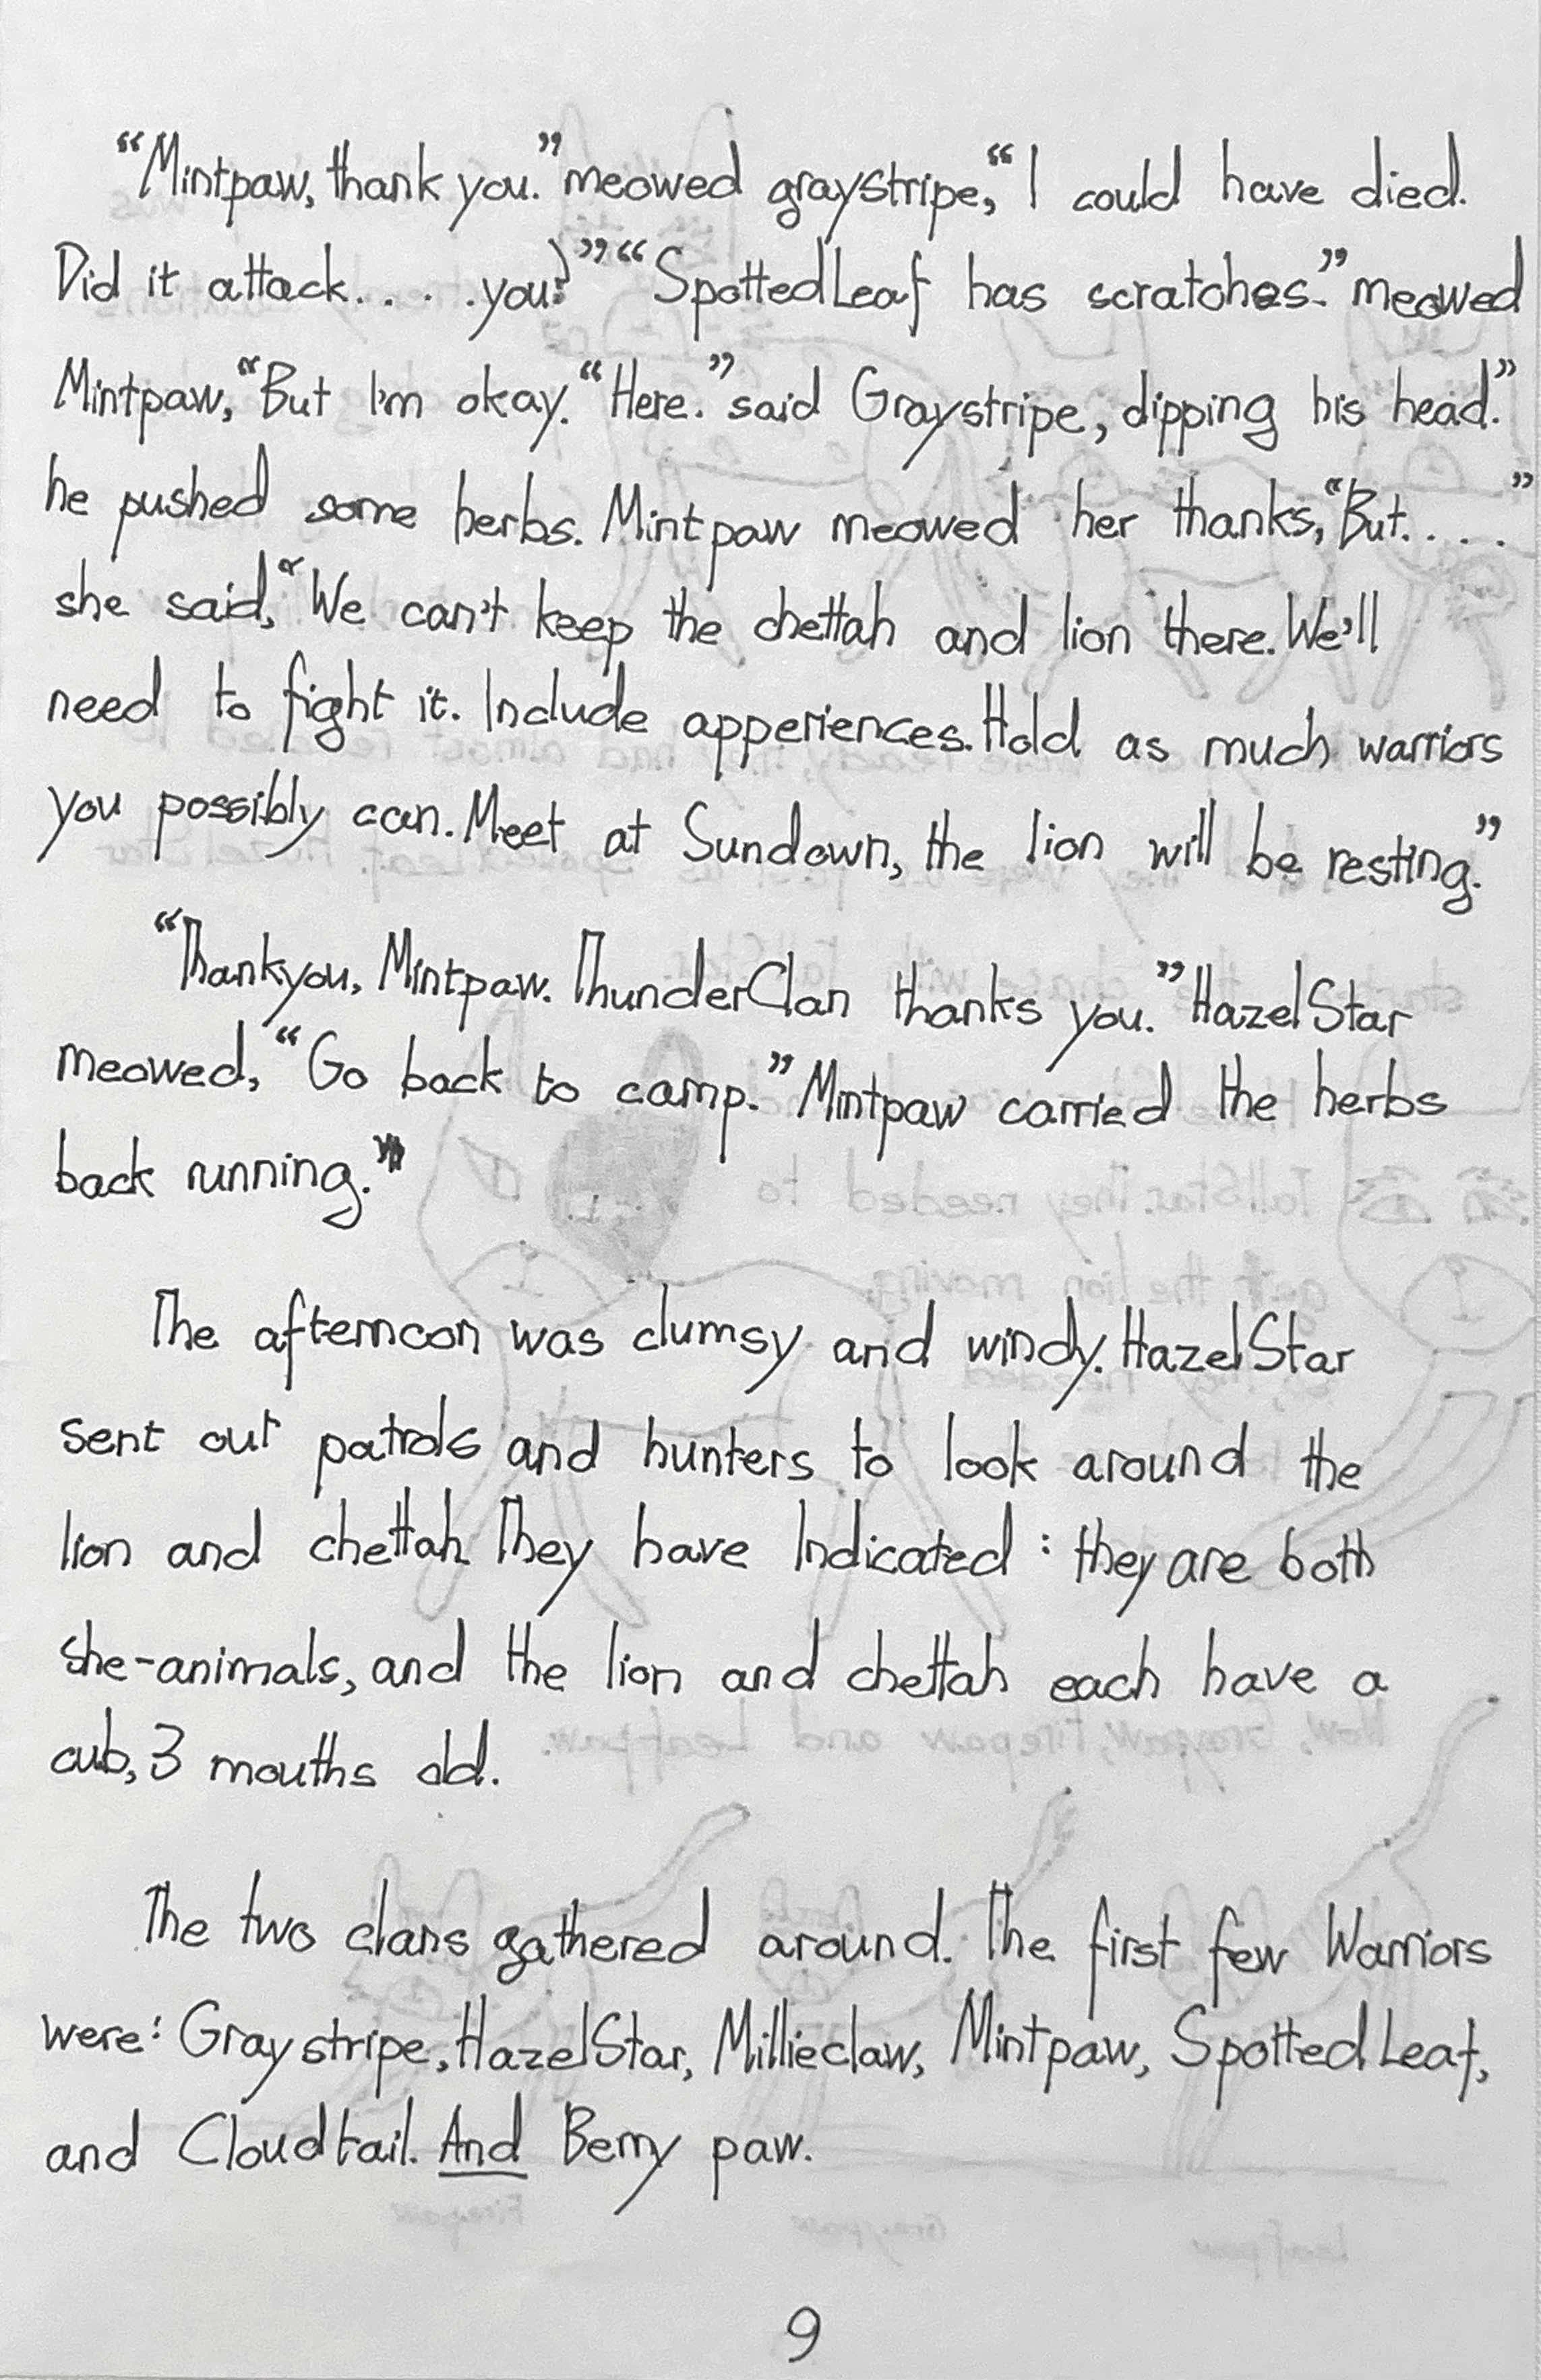 “Mintpaw, thank you.” meowed graystripe, “I could have died.
Did it attack.. . . .you?” “SpottedLeaf has scratches.” meowed
Mintpaw, “But I'm okay. “Here.” said Graystripe, dipping his head.”
he pushed some herbs. Mintpaw meowed her thanks, “But.. . . .”
she said, “We can't keep the chettah and lion there. We'll
need to fight it. Include apperiences. Hold as much warriors
you possibly can. Meet at Sundown, the lion will be resting.”
“Thankyou, Mintpaw. ThunderClan thanks you.” HazelStar
meowed, “Go back to camp.” Mintpaw carried the herbs
back running.”
The afternoon was clumsy and windy. HazelStar
sent out patrols and hunters to look around the
lion and chettah. They have Indicated : they are both
she-animals, and the lion and chettah each have a
cub, 3 mouths old.
The two clans gathered around. The first few Warriors
were: Graystripe, HazelStar, Millieclaw, Mintpaw, SpottedLeaf,
and Cloudtail. And Berry paw.
9